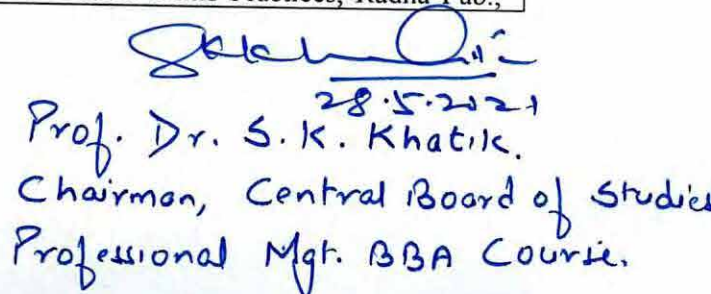 Radha Pub.,
28.5.2021
Prof. Dr. S. K. Khatik.
Chairman, Central Board of Studies
Professional Mgt. BBA Course.